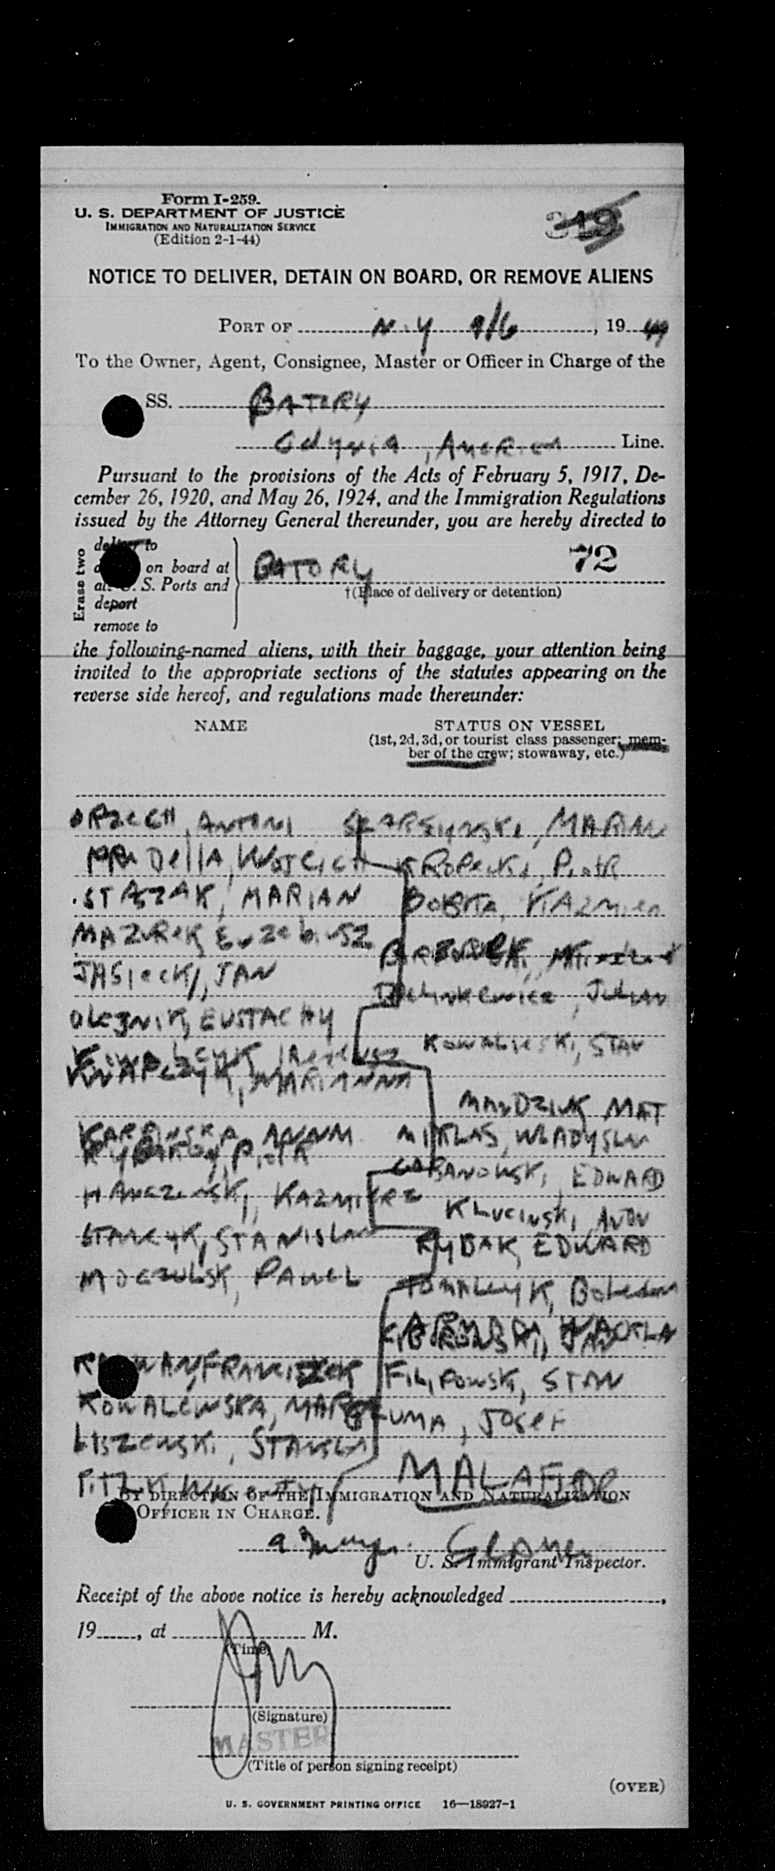 Form I-259.
U. S. DEPARTMENT OF JUSTICE
IMMIGRATION AND NATURALIZATION SERVICE
(Edition 2-1-44)
319
NOTICE TO DELIVER, DETAIN ON BOARD, OR REMOVE ALIENS
PORT OF N.Y 9/6, 1949
To the Owner, Agent, Consignee, Master or Officer in Charge of the
SS. BATORY
Gdynia, America Line.
Pursuant to the provisions of the Acts of February 5, 1917, De-
cember 26, 1920, and May 26, 1924, and the Immigration Regulations
issued by the Attorney General thereunder, you are hereby directed to
Erase two
deliver to
on board at
S. Ports and
deport
remove to
BATORY 72
†(Place of delivery or detention)
the following-named aliens, with their baggage, your attention being
invited to the appropriate sections of the statutes appearing on the
reverse side hereof, and regulations made thereunder:
NAME STATUS ON VESSEL
(1st, 2d, 3d, or tourist class passenger; mem-
ber of the crew; stowaway, etc.)
ORZECH, ANTONI MARIAN
WOJCIECH KROPECKI, PIOTR
STASZAK, MARIAN KAZMIER
MAZUREK, EUZEBIUSZ
JASIECKI, JAN JULIAN
OLEJNIK, EUSTACHY
KOWALSKI, STAN
KNAPCZYK, MARIANNA
MANDZIUK, MAT
KARPINSKA, ANNA MIKLAS, WLADYSLAW
PIOTR EDWARD
KAZMIERZ KLUCINSKI, ANTON
STANISLAW RYBAK, EDWARD
MOCZULSKI, PAWEL TOMALCZYK, BOLESLAW
FRANCISZEK FILIPOWSKI, STAN
KOWALEWSKA, JOSEF
LISZEWSKI, STANISLAW
MALAFIEJ
BY DIRECTION OF THE IMMIGRATION AND NATURALIZATION
OFFICER IN CHARGE.
U. S. Immigrant Inspector.
Receipt of the above notice is hereby acknowledged,
19, at M.
(Time)
(Signature)
MASTER
(Title of person signing receipt)
(OVER)
U. S. GOVERNMENT PRINTING OFFICE 16—18927-1